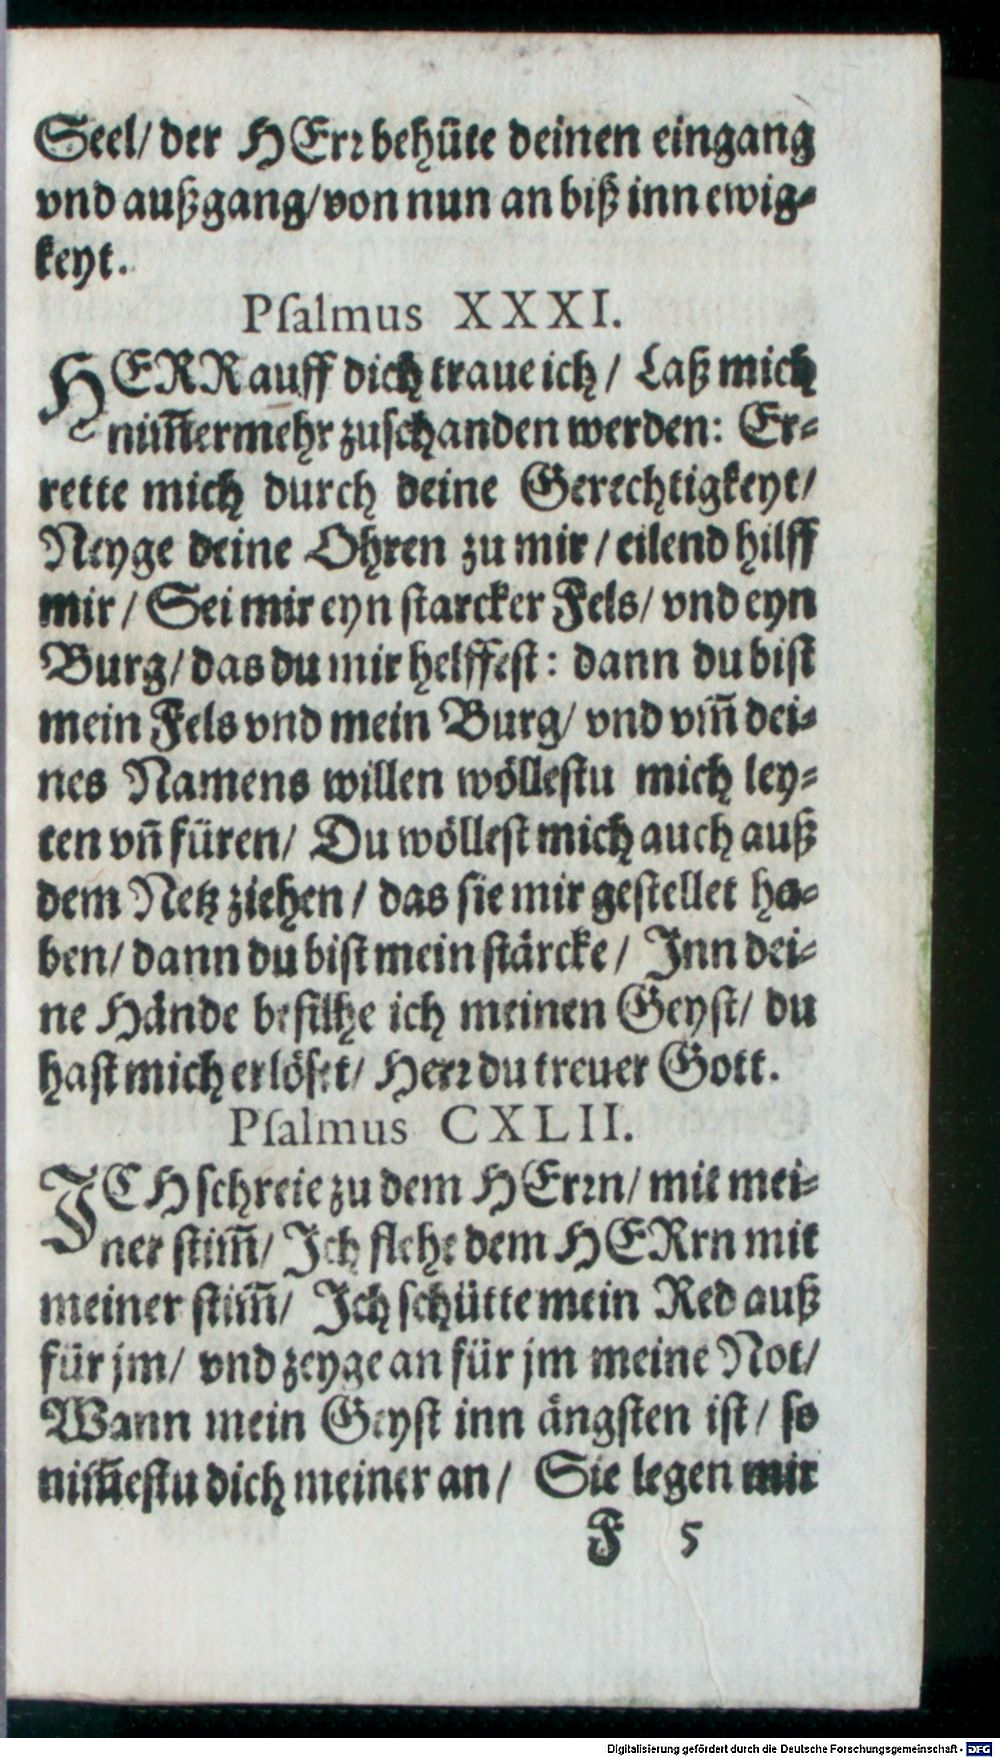 Seel/ der HErꝛ behüte deinen eingang
vnd außgang/ von nun an biß inn ewig⸗
keyt.
Pſalmus XXXI.
HERR auff dich traue ich/ Laß mich
nim̃ermehr zuſchanden werden: Er⸗
rette mich durch deine Gerechtigkeyt/
Neyge deine Ohren zu mir / eilend hilff
mir/ Sei mir eyn ſtarcker Fels/ vnd eyn
Burg/ das du mir helffeſt: dann du biſt
mein Fels vnd mein Burg/ vnd vm̃ dei⸗
nes Namens willen wöllestu mich ley⸗
ten vñ füren/ Du wölleſt mich auch auß
dem Netz ziehen / das ſie mir geſtellet ha⸗
ben/ dann du biſt mein ſtärcke/ Inn dei⸗
ne Hände befilhe ich meinen Geyſt/ du
haſt mich erlöſet/ Herꝛ du treuer Gott.
Pſalmus CXLII.
ICH ſchreie zu dem HErꝛn/ mit mei⸗
ner ſtim̃/ Ich flehe dem HERrn mit
meiner ſtim̃/ Ich ſchütte mein Red auß
für jm/ vnd zeyge an für jm meine Not/
Wann mein Geyſt inn ängſten iſt/ ſo
nim̃eſtu dich meiner an/ Sie legen mir
F 5
Digitalisierung gefördert durch die Deutsche Forschungsgemeinschaft - DFG